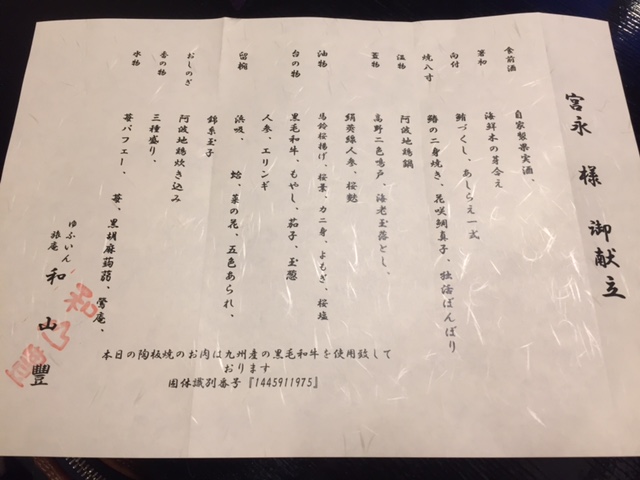 宮永 様 御献立
食前酒 自家製果実酒、
箸初 海鮮木の芽合え
向付 鮪づくし、あしらえ一式
焼八寸 鰆の二身焼き、花咲鯛真子、独活ぼんぼり
温物 阿波地鶏鍋
蓋物 高野二色鳴戸、海老玉落とし、
絹莢線人参、桜麩
油物 馬鈴桜揚げ、桜葉、カニ身、よもぎ、桜塩
台の物 黒毛和牛、もやし、茄子、玉葱
人参、エリンギ
留椀 浜吸、 蛤、菜の花、五色あられ、
錦糸玉子
おしのぎ 阿波地鶏炊き込み
香の物 三種盛り、
水物 苺パフェー、 苺、黒胡麻蒟蒻、鶯庵、
ゆふいん
旅庵 和山豊
本日の陶板焼のお肉は九州産の黒毛和牛を使用致して
おります
固体識別番号『1445911975』